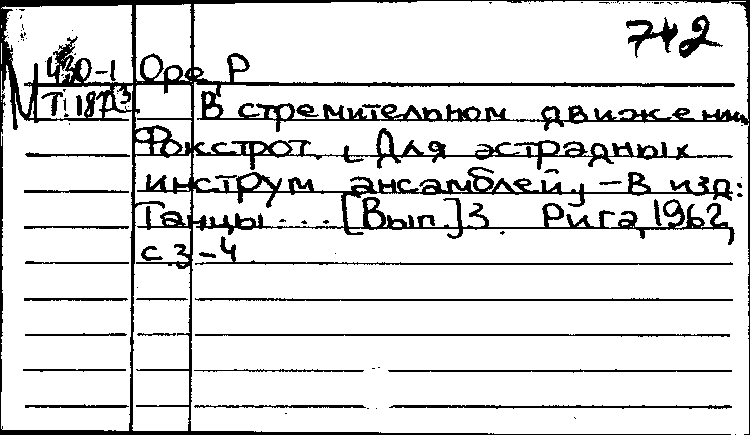 742
М 430-1 Оре, Р
Т. 187/3. В стремительном движении.
Фокстрот. [Для эстрадных
инструм ансамблей] – В изд:
Танцы ... [Вып.] 3. Рига, 1962,
с 3-4